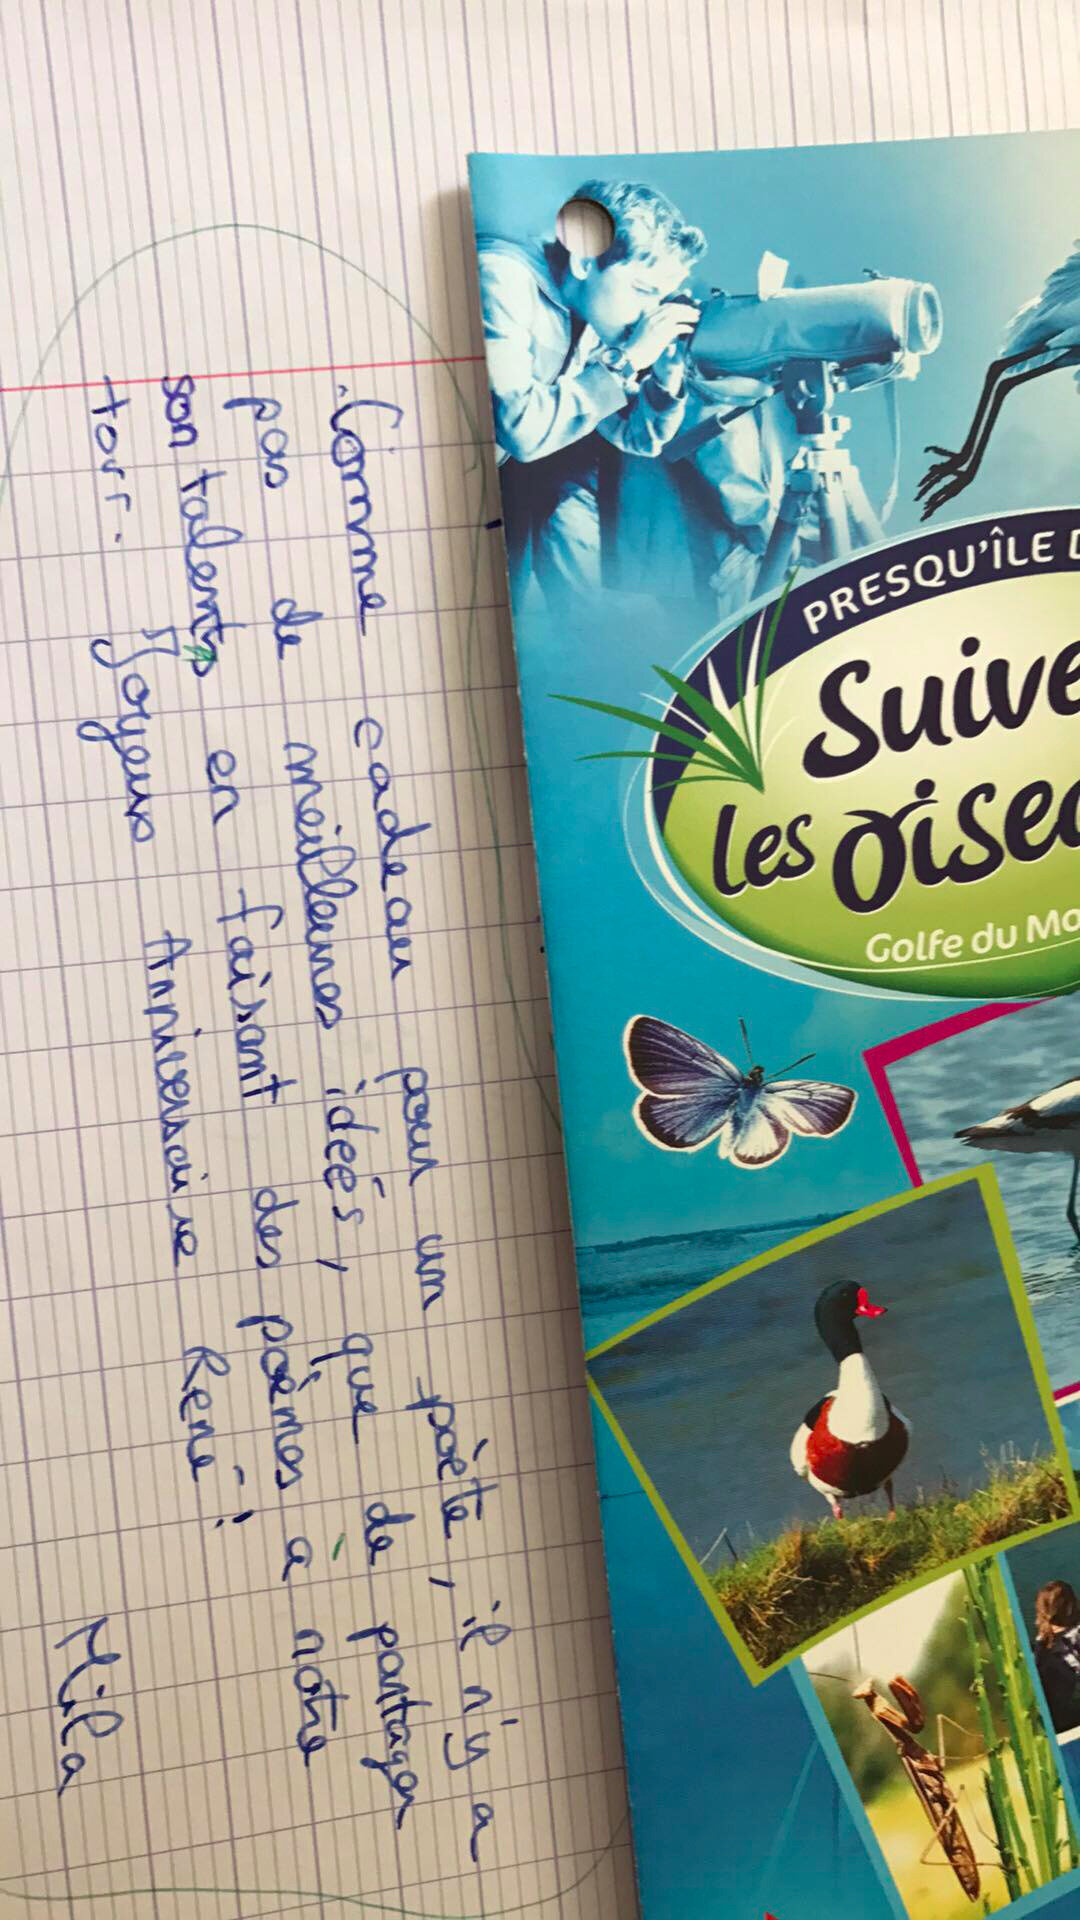 Comme cadeau pour un poète, il n'y a
pas de meilleures idées, que de partager
son talents en faisant des poèmes à notre
torr. Joyeux Anniversaire René !
Mila
PRESQU'ÎLE D
Suive
les oisea
Golfe du Mo